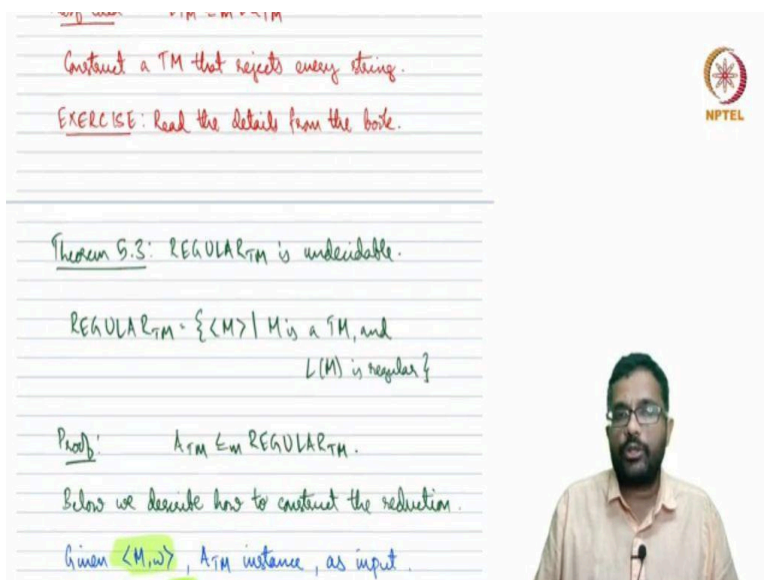 Construct a TM that rejects every string.
EXERCISE: Read the details from the book.
NPTEL
Theorem 5.3: REGULAR_TM is undecidable.
REGULAR_TM = {<M> | M is a TM, and
L(M) is regular}
Proof: A_TM ≤m REGULAR_TM.
Below we describe how to construct the reduction.
Given <M,w>, A_TM instance, as input.